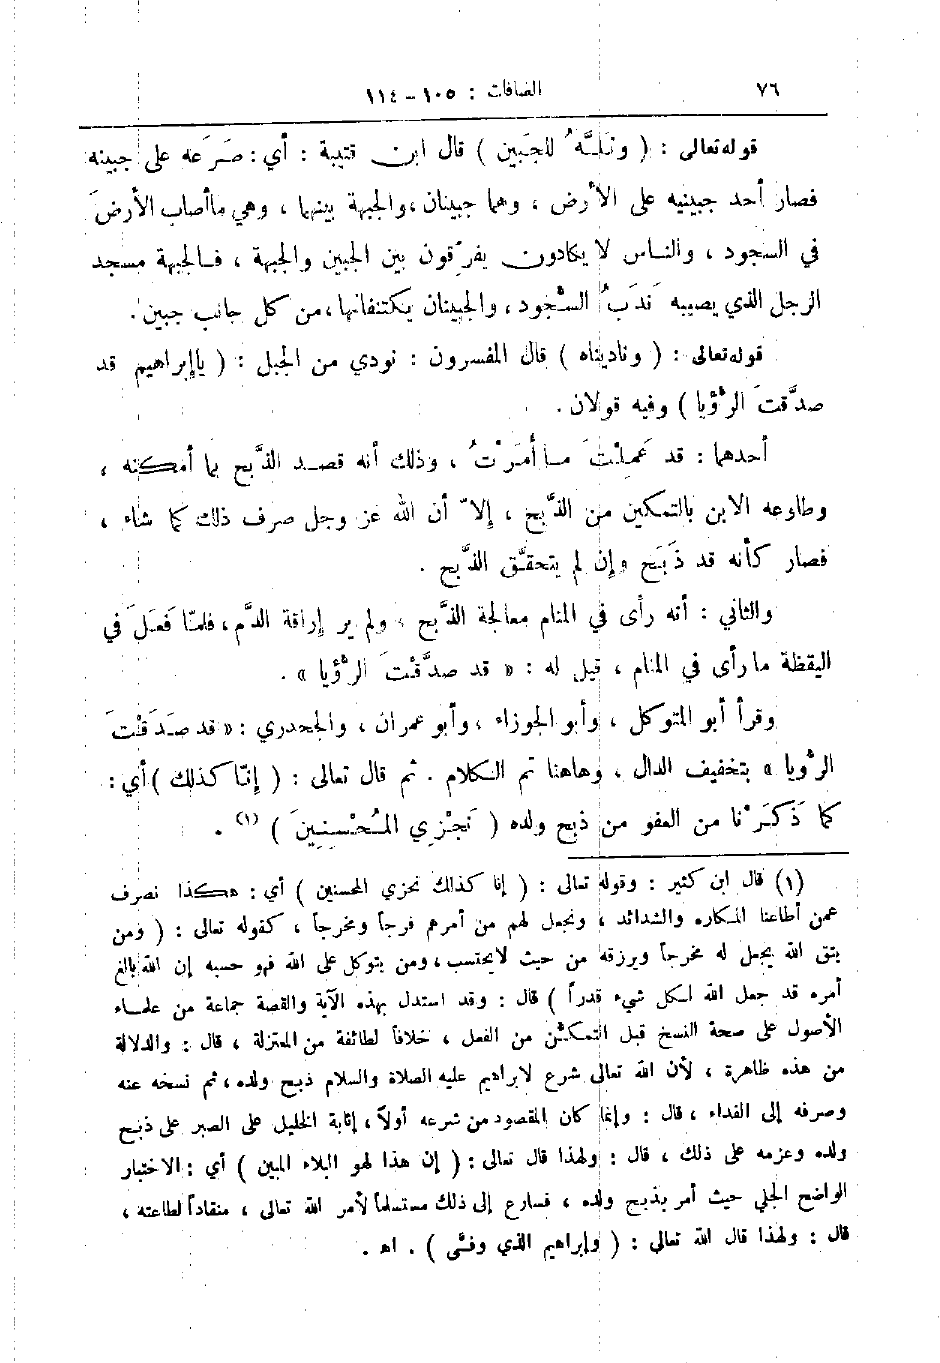 ٧٦ الصافات : ١٠٥ - ١١٤
قوله تعالى : ( وتَلَّهُ للجَبين ) قال ابن قتيبة : أي : صَرَعه على جبينه
فصار أحد جبينيه على الأرض ، وهما جبينان ، والجبهة بينهما ، وهي ماأصاب الأرضَ
في السجود ، والناس لا يكادون يفرِّقون بين الجبين والجبهة ، فالجبهة مسجد
الرجل الذي يصيبه نَدَبُ السُّجود ، والجبينان يكتنفانها ، من كل جانب جبين .
قوله تعالى : ( وناديناه ) قال المفسرون : نودي من الجبل : ( ياإبراهيم قد
صدَّقتَ الرُّؤيا ) وفيه قولان .
أحدهما : قد عَمِلْتَ ما أُمَرْتُ ، وذلك أنه قصد الذَّبح بما أمكنه ،
وطاوعه الابن بالتمكين من الذَّبح ، إلاّ أن الله عز وجل صرف ذلك كما شاء ،
فصار كأنه قد ذَبَح وإن لم يتحقَّق الذَّبح .
والثاني : أنه رأى في المنام معالجة الذَّبح ، ولم ير إراقة الدَّم ، فلمّا فَعَلَ في
اليقظة ما رأى في المنام ، قيل له : « قد صدَّقْتَ الرُّؤيا » .
وقرأ أبو المتوكل ، وأبو الجوزاء ، وأبو عمران ، والجحدري : « قد صَدَقْتَ
الرُّؤيا » بتخفيف الدال ، وهاهنا تم الكلام . ثم قال تعالى : ( إنّا كذلك ) أي :
كما ذَكَرْنا من العفو من ذبح ولده ( نَجْزِي المُحْسِنِينَ ) (١) .
(١) قال ابن كثير : وقوله تعالى : ( إنا كذلك نجزي المحسنين ) أي : هكذا نصرف
عمن أطاعنا المكاره والشدائد ، ونجعل لهم من أمرهم فرجاً ومخرجاً ، كقوله تعالى : ( ومن
يتق الله يجعل له مخرجاً ويرزقه من حيث لايحتسب ، ومن يتوكل على الله فهو حسبه إن الله بالغ
أمره قد جعل الله لكل شيء قدراً ) قال : وقد استدل بهذه الآية والقصة جماعة من علماء
الأصول على صحة النسخ قبل التمكّن من الفعل ، خلافاً لطائفة من المعتزلة ، قال : والدلالة
من هذه ظاهرة ، لأن الله تعالى شرع لابراهيم عليه الصلاة والسلام ذبح ولده ، ثم نسخه عنه
وصرفه إلى الفداء ، قال : وإنما كان المقصود من شرعه أولاً ، إثابة الخليل على الصبر على ذبح
ولده وعزمه على ذلك ، قال : ولهذا قال تعالى : ( إن هذا لهو البلاء المبين ) أي : الاختبار
الواضح الجلي حيث أمر بذبح ولده ، فسارع إلى ذلك مستسلماً لأمر الله تعالى ، منقاداً لطاعته ،
قال : ولهذا قال الله تعالى : ( وإبراهيم الذي وفّى ) . اه .